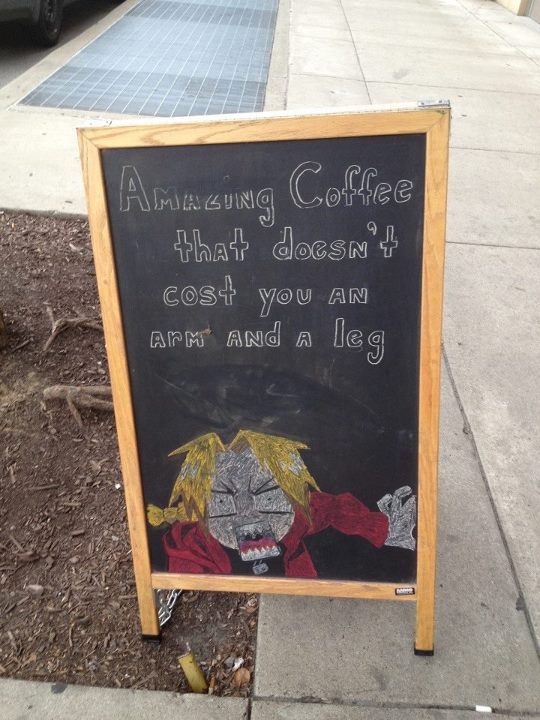 Amazing Coffee
that doesn't
cost you an
arm and a leg